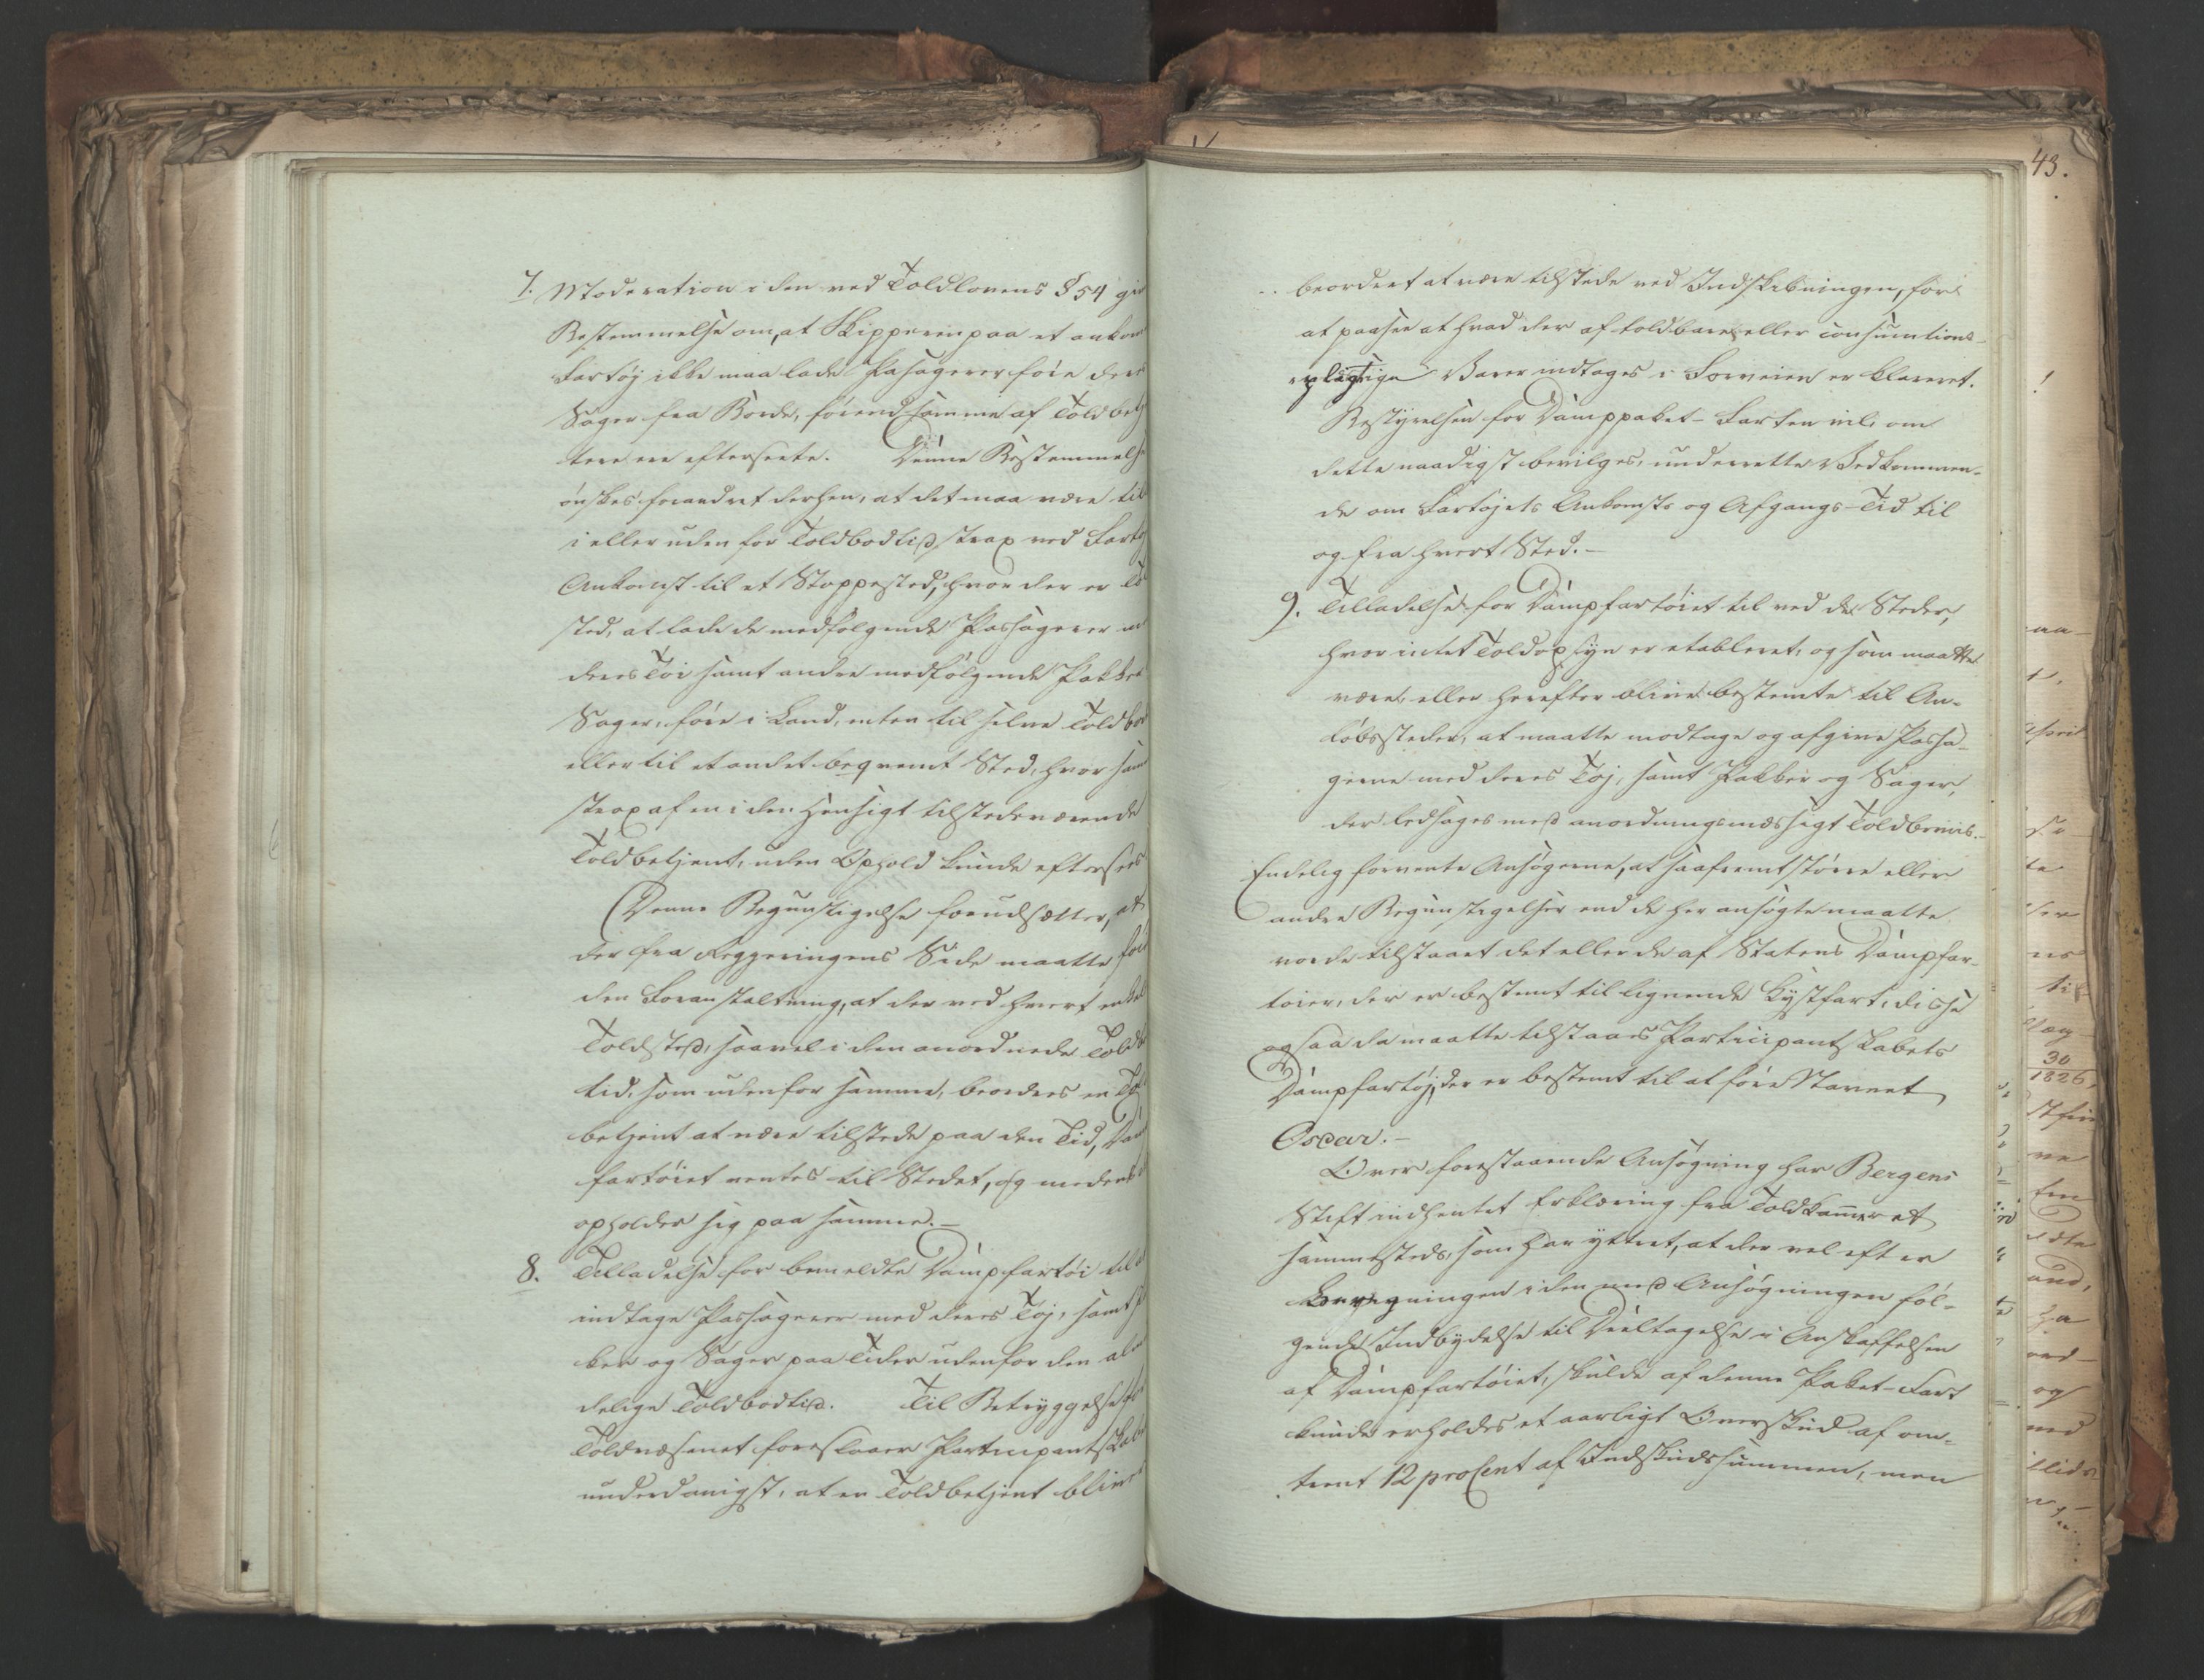 7. Moderation i den ved Toldlovens § 54 giv
Bestemmelse om, at Skipperen paa et ankom
Fartøj ikke maa lade Pasagerer føre deres
Sager fra Borde, førend samme af Toldbetj
tere ere efterseete. Denne Bestemmelse
ønskes forandret derhen, at det maa være till
i eller uden for Toldbodtid strax ved Fartøj
Ankomst til et Stoppested, hvor der er Told
sted, at lade de medfølgende Passagerer med
deres Tøi samt andre medfølgende Pakker
Sager, føre i Land, enten til selve Toldbod
eller til et andet beqvemt Sted, hvor sam
strax af en i den Hensigt tilstedeværende
Toldbetjent, uden Ophold kunde eftersees
(Denne Begunstigelse forudsætter, at
der fra Regjeringens Side maatte føie
den Foranstaltning, at der ved hvert enkelt
Toldsted, saavel i den anordnede Toldbod
tid, som udenfor samme, beordres en Told
betjent at være tilstede paa den Tid, Damp
fartøiet ventes til Stedet, og medens
opholder sig paa samme. —
8. Tilladelse for bemeldte Dampfartøi til a
indtage Passagerer med deres Tøj, samt P
ker og Sager paa Tider udenfor den alm
delige Toldbodtid. Til Betryggelse for
Toldvæsenet foreslaaer Participantskabet
underdanigst, at en Toldbetjent bliver
43.
beordret at være tilstede ved Indskibningen, for
at paasee at hvad der af toldbare eller consumtions-
pligtige Varer indtages i Forveien er klareret.
Bestyrelsen for Damppaket-Farten vil, om
dette naadigst bevilges, underrette Vedkommen-
de om Fartøjets Ankomsts og Afgangs-Tid til
og fra hvert Sted. —
9. Tilladelse for Dampfartøiet til ved de Steder,
hvor intet Toldopsyn er etableret, og som maatte
være, eller herefter blive bestemte til An-
løbssteder, at maatte modtage og afgive Passa-
gerer med deres Tøj, samt Pakker og Sager,
der ledsages med anordningsmæssigt Toldbeviis.
Endelig forvente Ansøgerne, at saafremt større eller
andre Begunstigelser end de her ansøgte maatte
vorde tilstaaet det eller de af Statens Dampfar-
tøier, der er bestemt til lignende Kystfart, disse
ogsaa da maatte tilstaaes Participantskabets
Dampfartøj, der er bestemt til at føre Navnet
Oscar. —
Over forestaaende Ansøgning har Bergens
Stift indhentet Erklæring fra Toldkammeret
sammesteds, som har yttret, at der vel efter
Beregningen i den med Ansøgningen føl-
gende Indbydelse til Deeltagelse i Anskaffelsen
af Dampfartøiet, skulde af denne Paket-Fart
kunde erholdes et aarligt Overskud af om-
trent 12 proCent af Indskudssummen, men